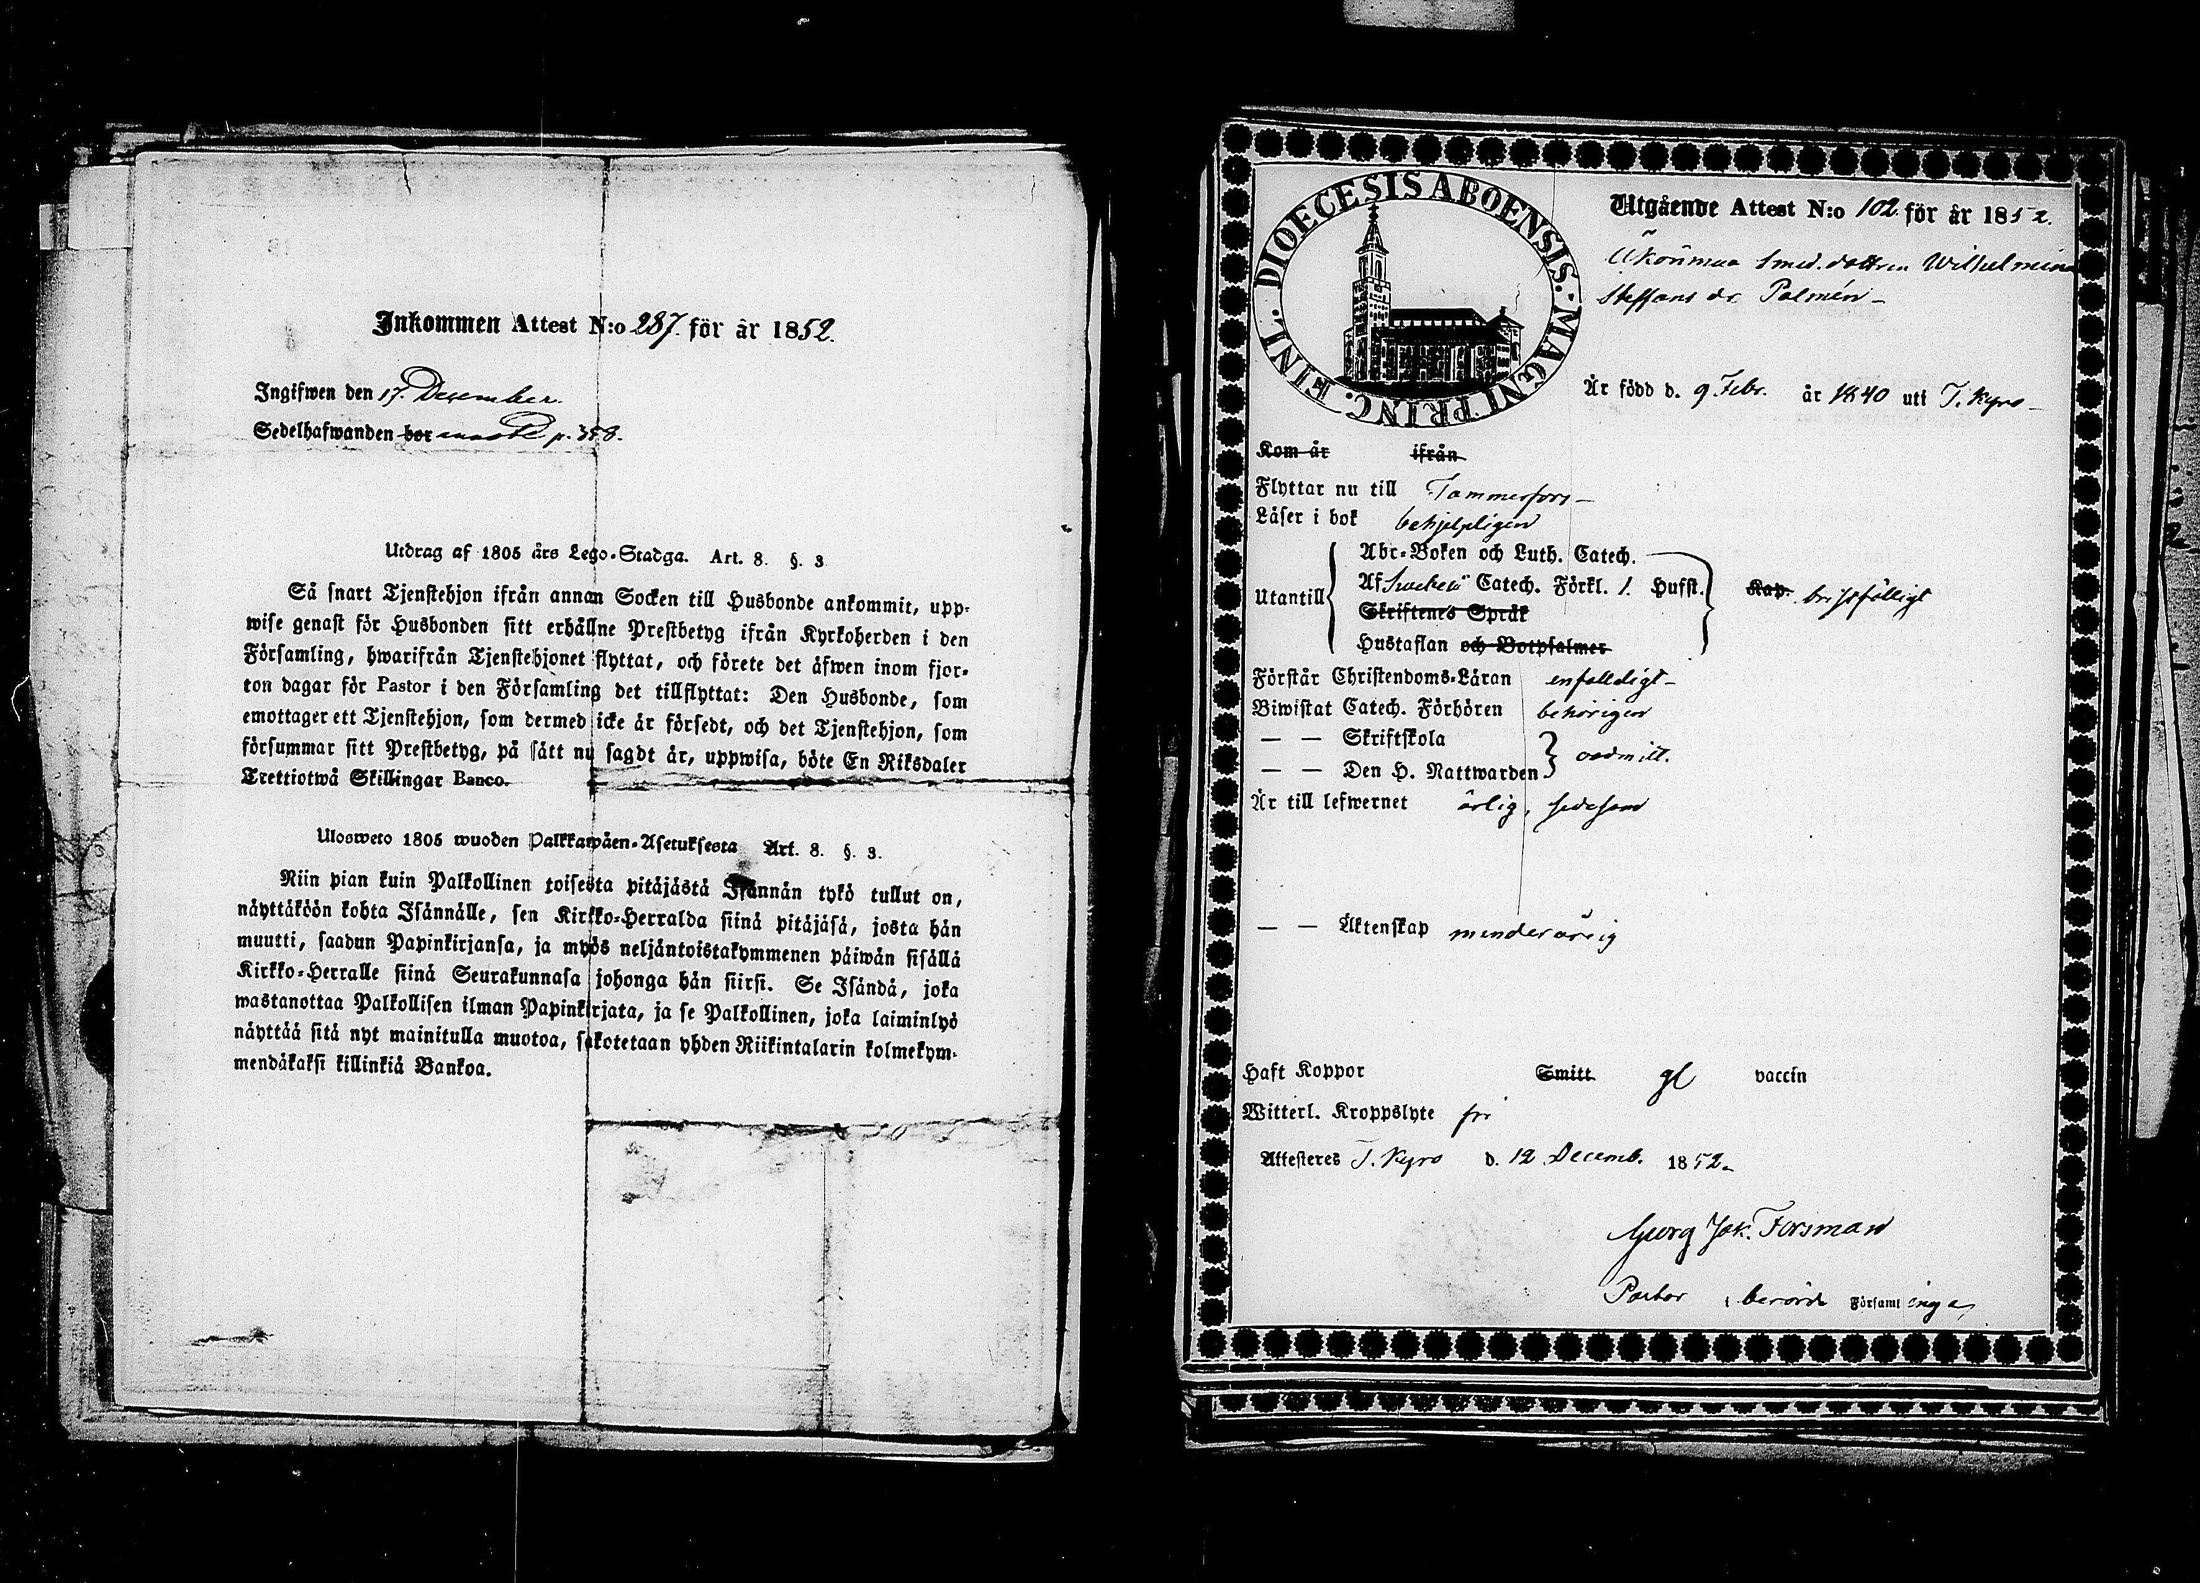 Inkommen Attest N:o 287. för år 1852.
Ingifwen den 17. December.
Sedelhafwanden bor p. 358.
Utdrag af 1805 års Lego-Stadga. Art. 8. §. 3
Så snart Tjenstehjon ifrån annan Socken till Husbonde ankommit, upp-
wise genast för Husbonden sitt erhållne Prestbetyg ifrån Kyrkoherden i den
Församling, hwarifrån Tjenstehjonet flyttat, och förete det äfwen inom fjor-
ton dagar för Pastor i den Församling det tillflyttat: Den Husbonde, som
emottager ett Tjenstehjon, som dermed icke är försedt, och det Tjenstehjon, som
försummar sitt Prestbetyg, på sätt nu sagdt är, uppwisa, böte En Riksdaler
Trettiotwå Skillingar Banco.
Ulosweto 1805 wuoden Palkkawäen-Asetuksesta Art. 8. §. 3.
Niin pian kuin Palkollinen toisesta pitäjästä Isännän tykö tullut on,
näyttäköön kohta Isännälle, sen Kirkko-Herralda siinä pitäjäsä, josta hän
muutti, saadun Papinkirjansa, ja myös neljäntoistakymmenen päiwän sisällä
Kirkko-Herralle siinä Seurakunnasa johonga hän siirsi. Se Isändä, joka
wastanottaa Palkollisen ilman Papinkirjata, ja se Palkollinen, joka laiminlyö
näyttää sitä nyt mainitulla muotoa, sakotetaan yhden Riikintalarin kolmekym-
mendäkaksi killinkiä Bankoa.
DIOECESIS ABOENSIS. MAGNI PRINC. FINL.
Utgående Attest N:o 102 för år 1852.
Smed. dottren Wilhelmina
Steffans dr. Palmén
Är född d. 9 Febr. år 1840 uti T. Kyro
Kom år ifrån
Flyttar nu till Tammerfors
Läser i bok behjelpligen
Abc-Boken och Luth. Catech.
Utantill Af Swebelii Catech. Förkl. 1. Hufst. Kap.
Skriftenes Språk
Hustaflan och Botpsalmer
Förstår Christendoms-Läran enfalldigt
Biwistat Catech. Förhören behörigen
— — Skriftskola
— — Den H. Nattwarden oadmitt.
Är till lefwernet ärlig, sedesam
— — Äktenskap minderårig
Haft Koppor Smitt gl vaccin
Witterl. Kroppslyte fri
Attesteres T. Kyro d. 12 Decemb. 1852.
Georg Jak. Forsman
Pastor i berörde Församlingen